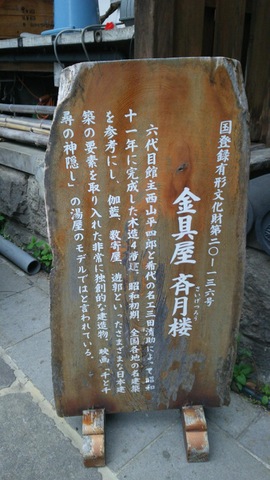 国登録有形文化財第二〇ー一三六号
金具屋 斉月楼
さいげつろう
六代目館主西山平四郎と希代の名工三田清助によって昭和
十一年に完成した木造4階建。昭和初期、全国各地の名建築
を参考にし、伽藍、数寄屋、遊郭といったさまざまな日本建
築の要素を取り入れた非常に独創的な建造物。映画「千と千
尋の神隠し」の湯屋のモデルではと言われている。